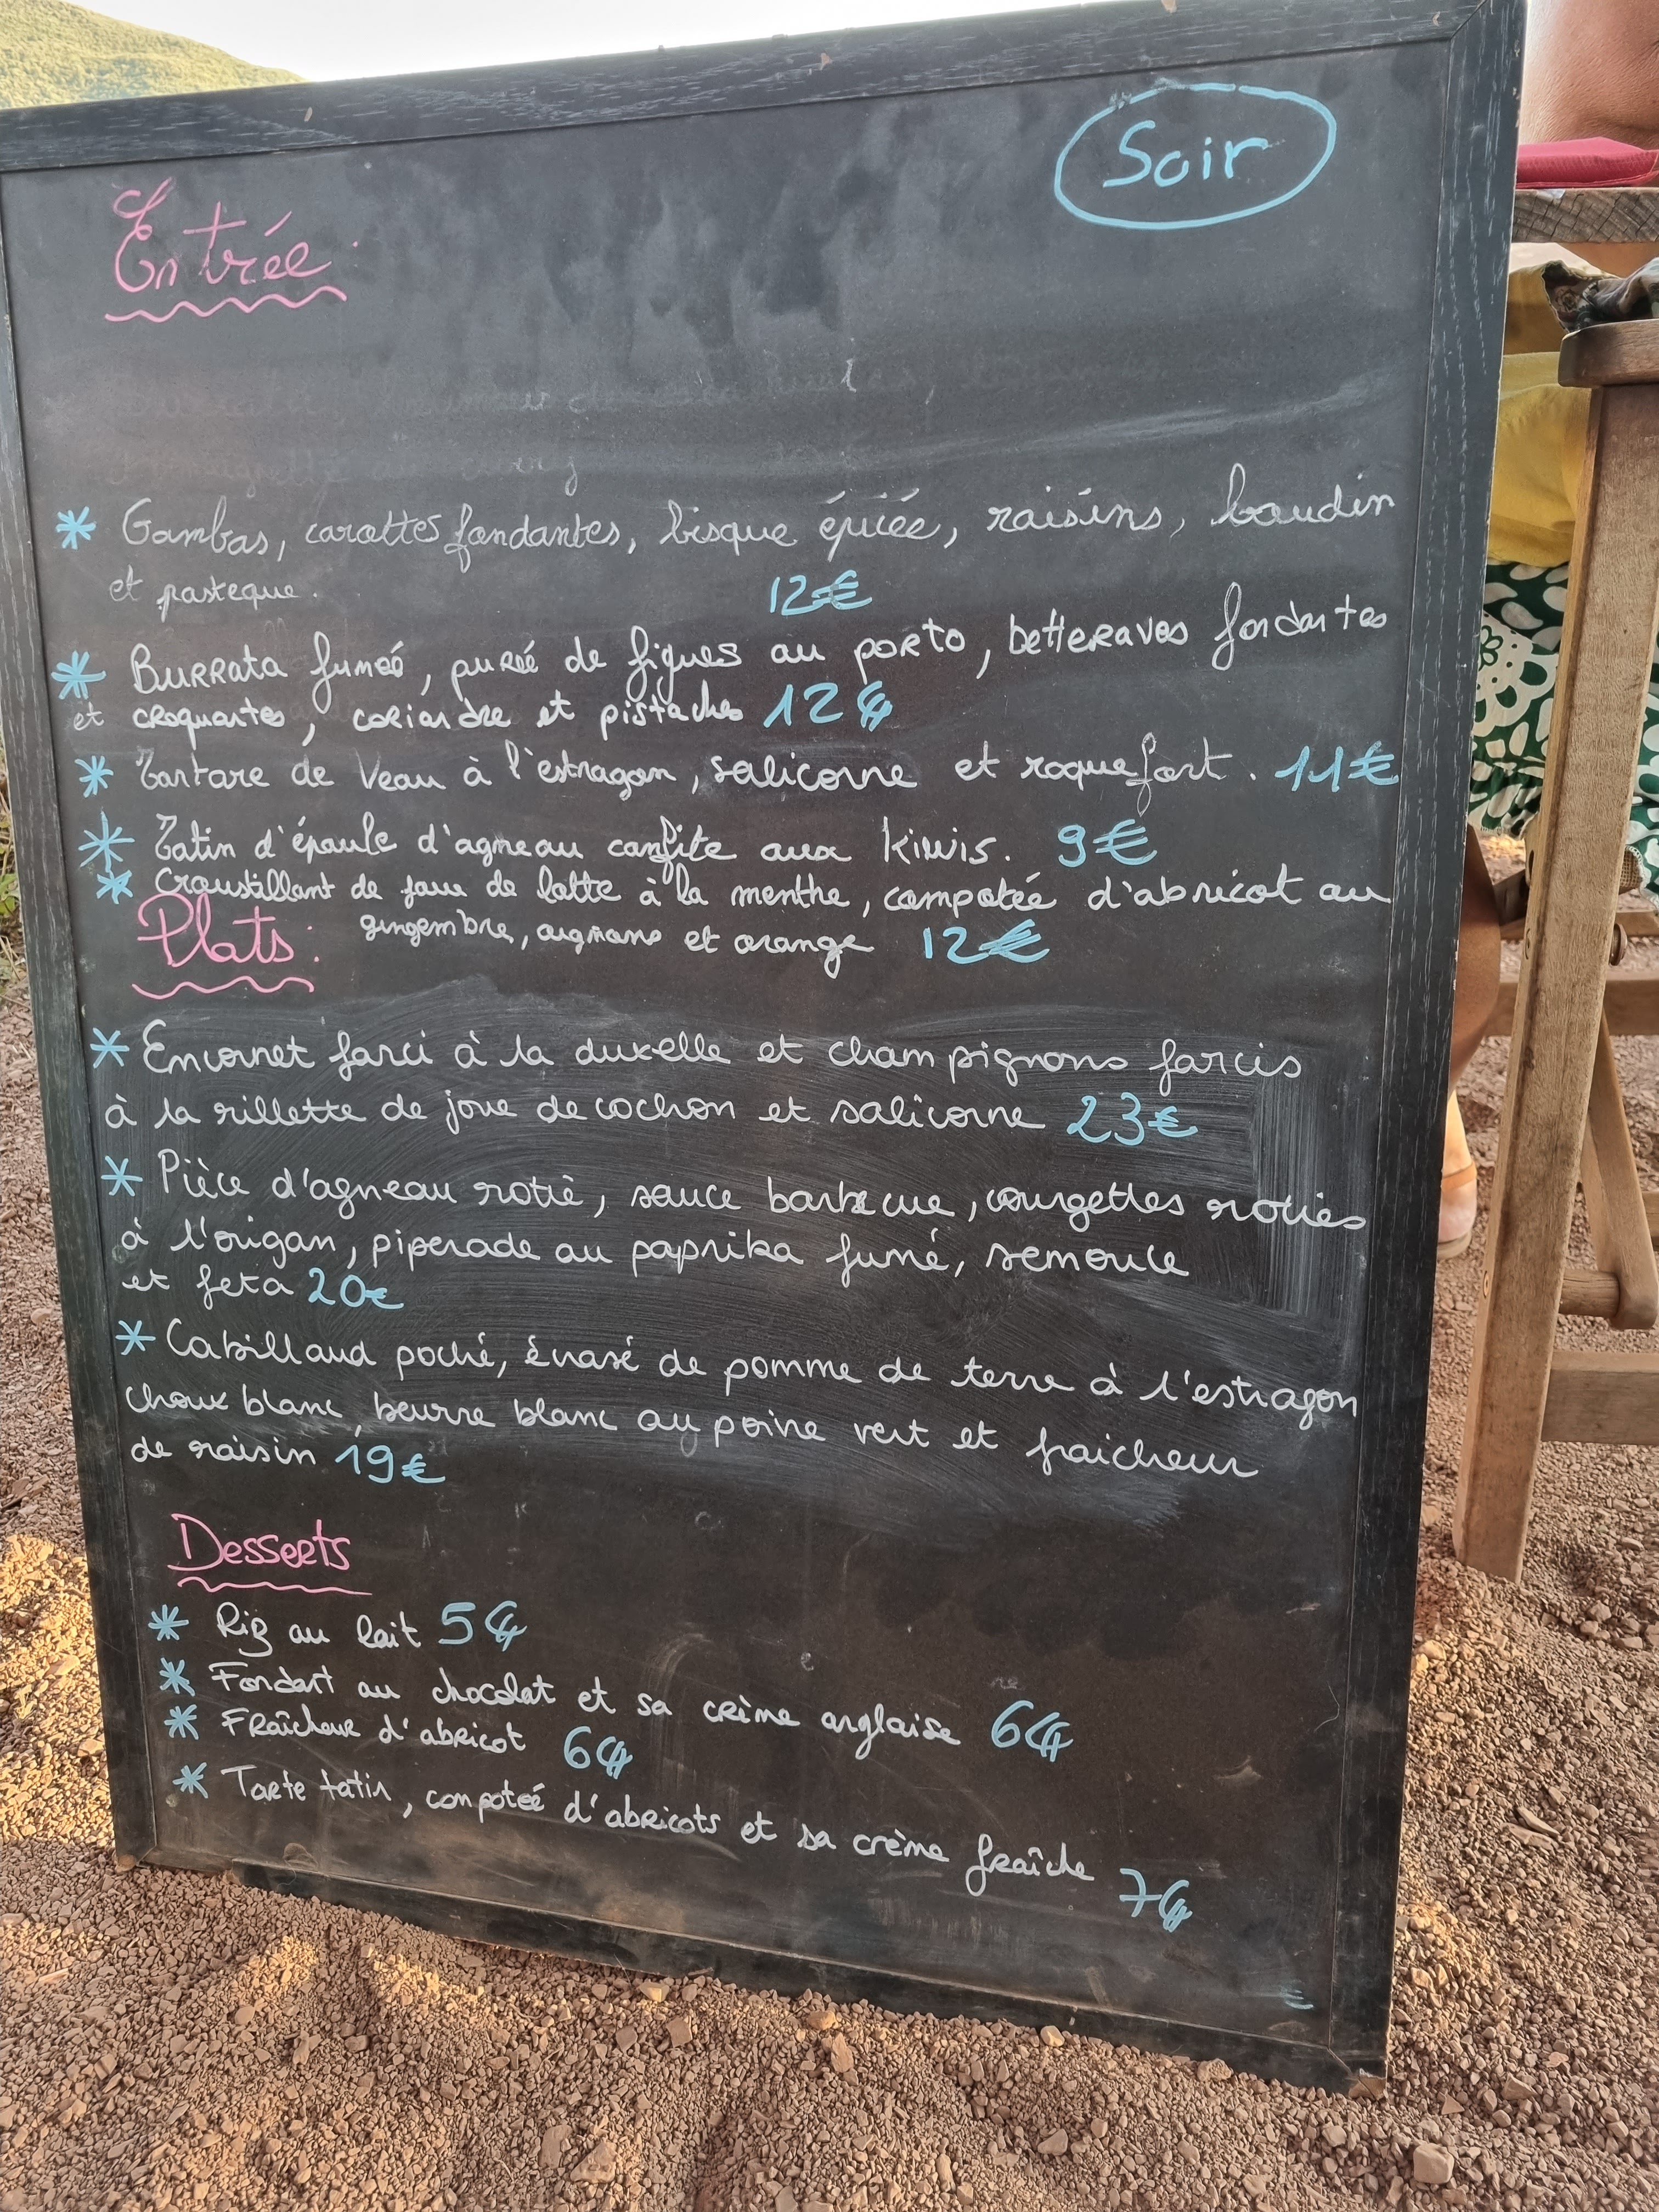 Soir
Entrée
* Gambas, carottes fondantes, bisque épicée, raisins, boudin
et pasteque.
12€
* Burrata fumée, purée de figues au porto, betteraves fondantes
et croquantes, coriandre et pistaches 12€
* Tartare de veau à l'estragon, salicorne et roquefort. 11€
* Tatin d'épaule d'agneau confite aux kiwis. 9€
* Croustillant de joue de lotte à la menthe, compotée d'abricot au
Plats: gingembre, oignons et orange 12€
* Encornet farci à la duxelle et champignons farcis
à la rillette de joue de cochon et salicorne 23€
* Pièce d'agneau rotie, sauce barbecue, courgettes roties
à l'origan, piperade au paprika fumé, semoule
et feta 20€
* Cabillaud poché, écrasé de pomme de terre à l'estragon
choux blanc, beurre blanc au poivre vert et fraicheur
de raisin 19€
Desserts
* Riz au lait 5€
* Fondant au chocolat et sa crème anglaise 6€
* Fraîcheur d'abricot 6€
* Tarte tatin, compotée d'abricots et sa crème fraîche 7€